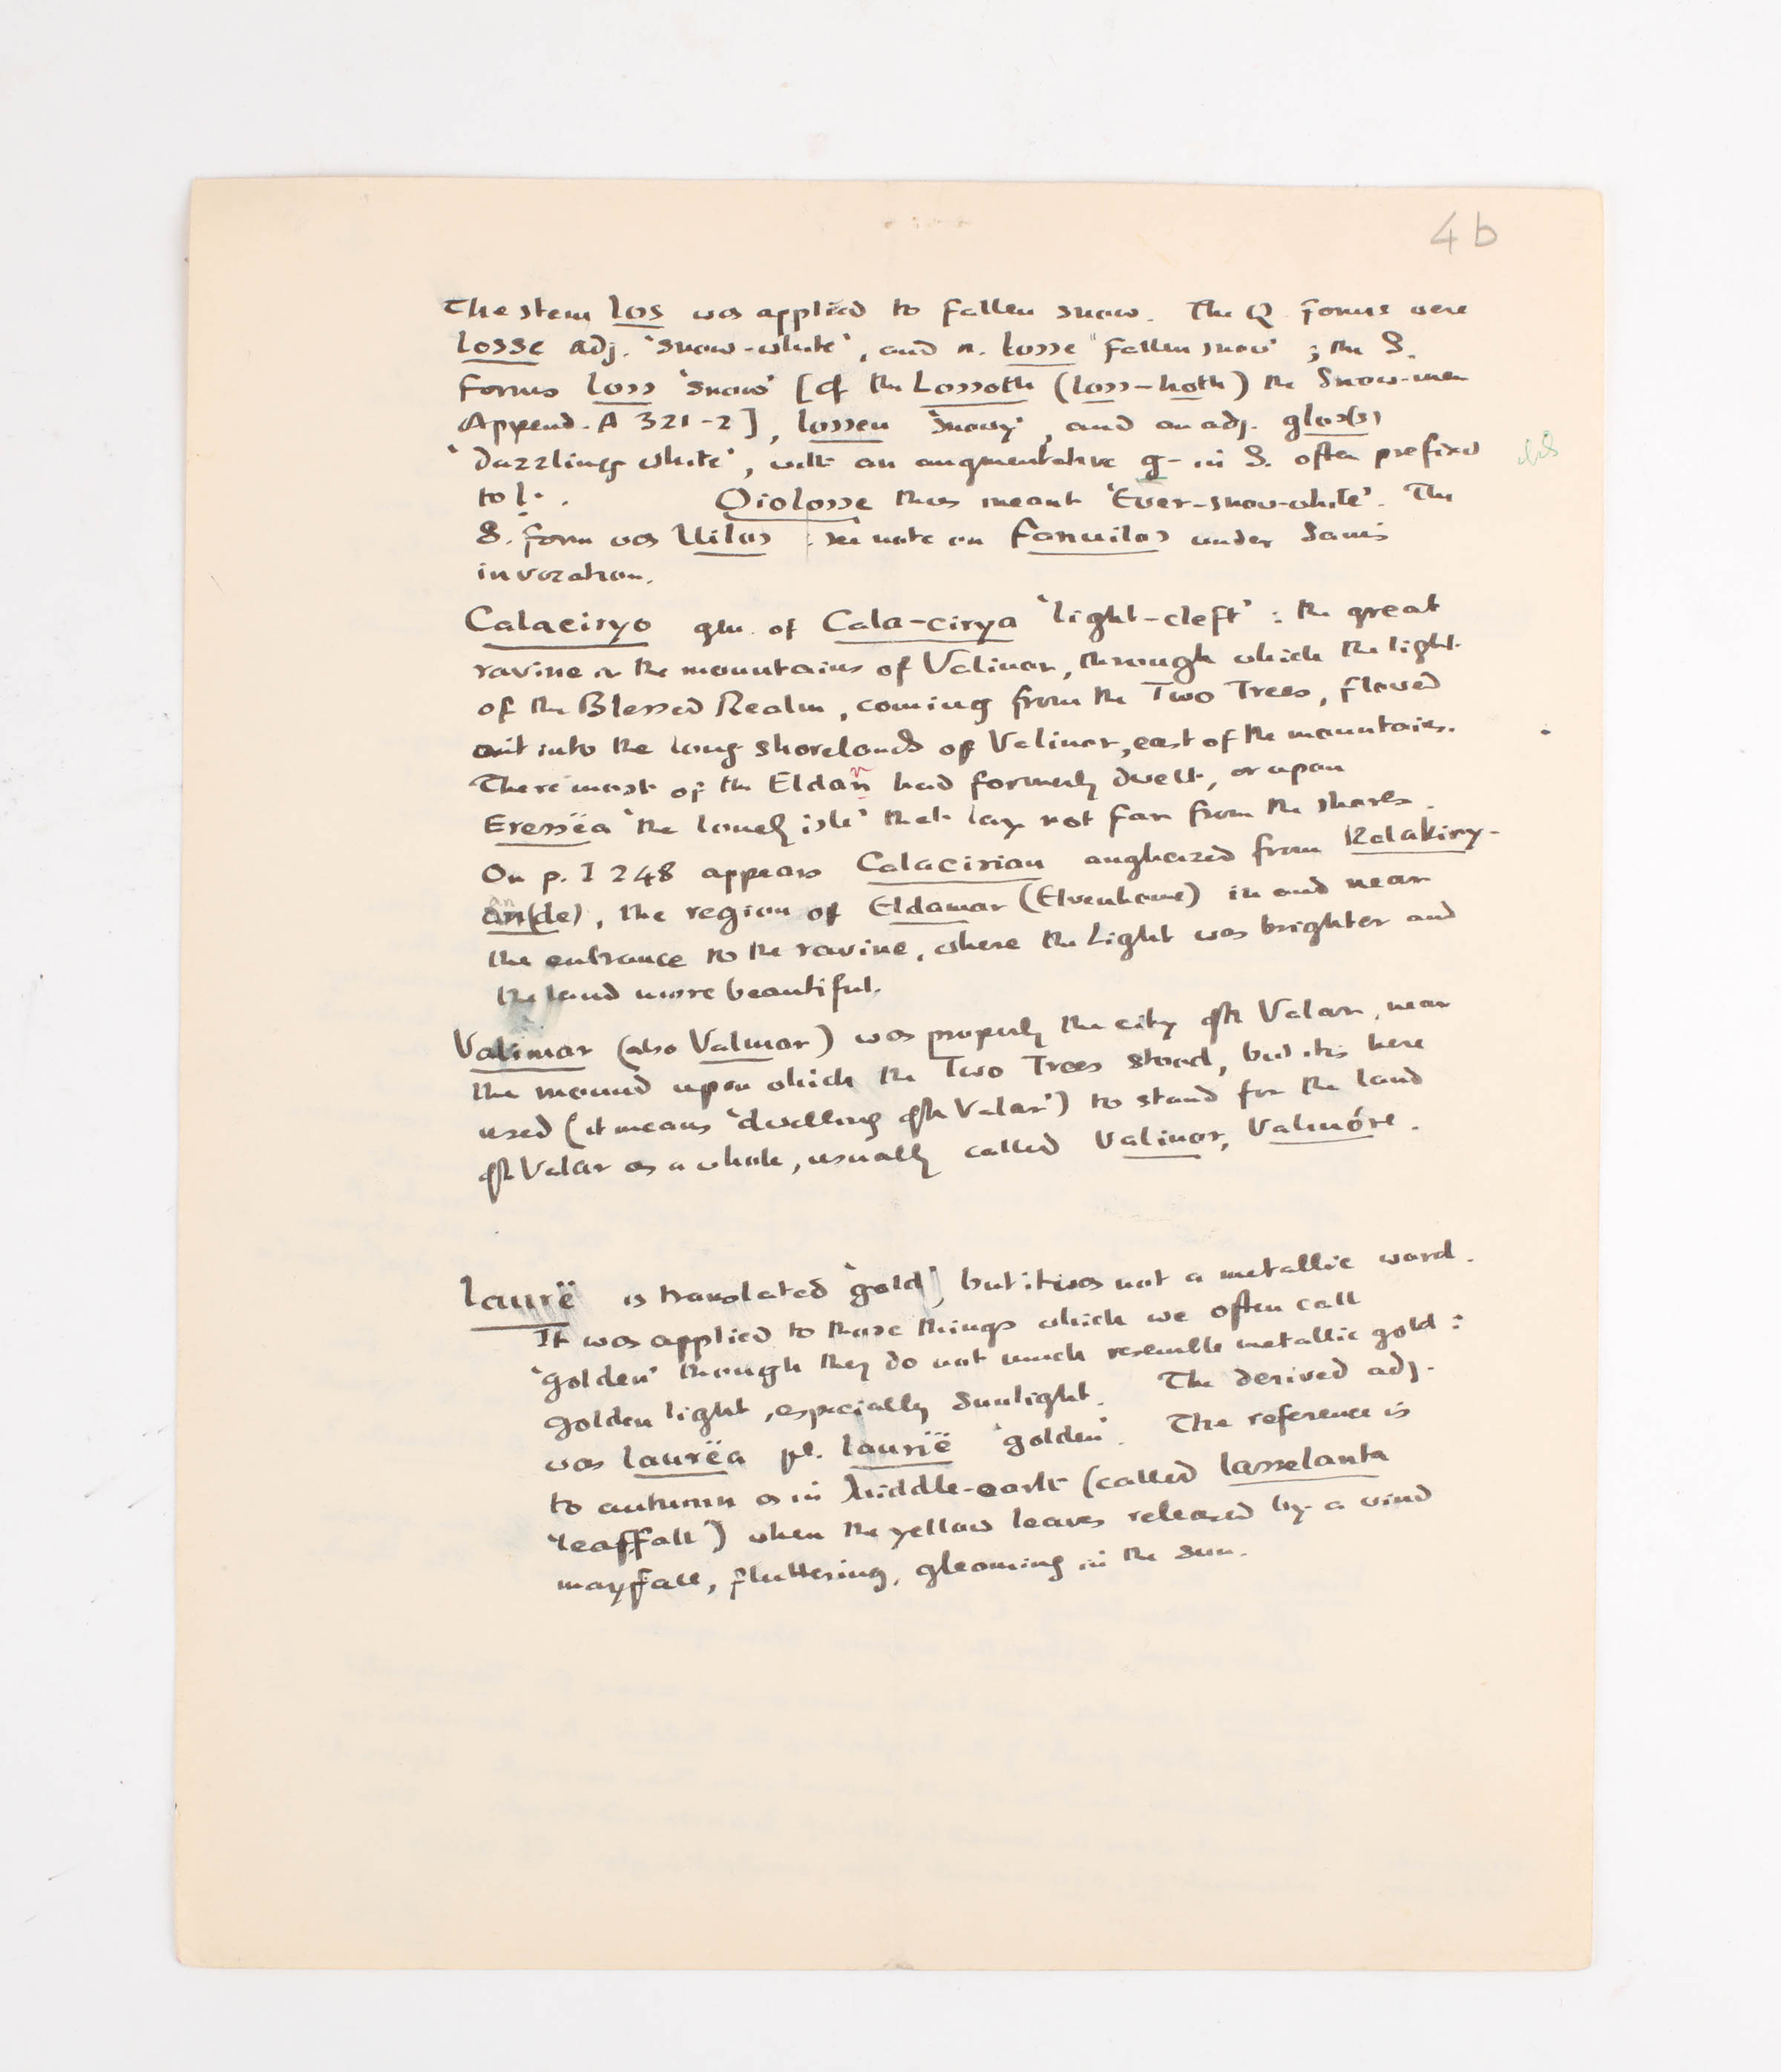 4b
The stem los was applied to fallen snow. The Q forms were
losse adj. 'snow-white', and n. losse "fallen snow' ; the S.
forms loss 'snow' [cf the Lossoth (loss-hoth) the Snow-men
Append. A 321-2], lossen 'snowy', and an adj. glos(s)
'dazzling white', with an augmentative g- in S. often prefixed
to l-. Oiolosse thus meant 'Ever-snow-white'. The
S. form was Uilos : see note on Fanuilos under Sam's
invocation.
Calaciryo gen. of Cala-cirya 'light-cleft' : the great
ravine in the mountains of Valinor, through which the light
of the Blessed Realm, coming from the Two Trees, flowed
out into the long shorelands of Valinor, east of the mountains.
There most of the Eldar had formerly dwelt, or upon
Eressëa 'the lonely isle' that lay not far from the shores.
On p. I 248 appears Calacirian anglicized from Kalakiry-
an(de), the region of Eldamar (Elvenhome) in and near
the entrance to the ravine, where the Light was brighter and
the land more beautiful.
Valimar (also Valmar) was properly the city of the Valar, near
the mound upon which the Two Trees stood, but it is here
used (it means 'dwelling of the Valar') to stand for the land
of the Valar as a whole, usually called Valinor, Valinóre.
laurë is translated 'gold', but it was not a metallic word.
It was applied to those things which we often call
'golden' though they do not much resemble metallic gold :
golden light, especially sunlight. The derived adj.
was laurëa pl. laurië 'golden'. The reference is
to autumn as in Middle-earth (called lasselanta
'leaffall') when the yellow leaves released by a wind
may fall, fluttering, gleaming in the sun.